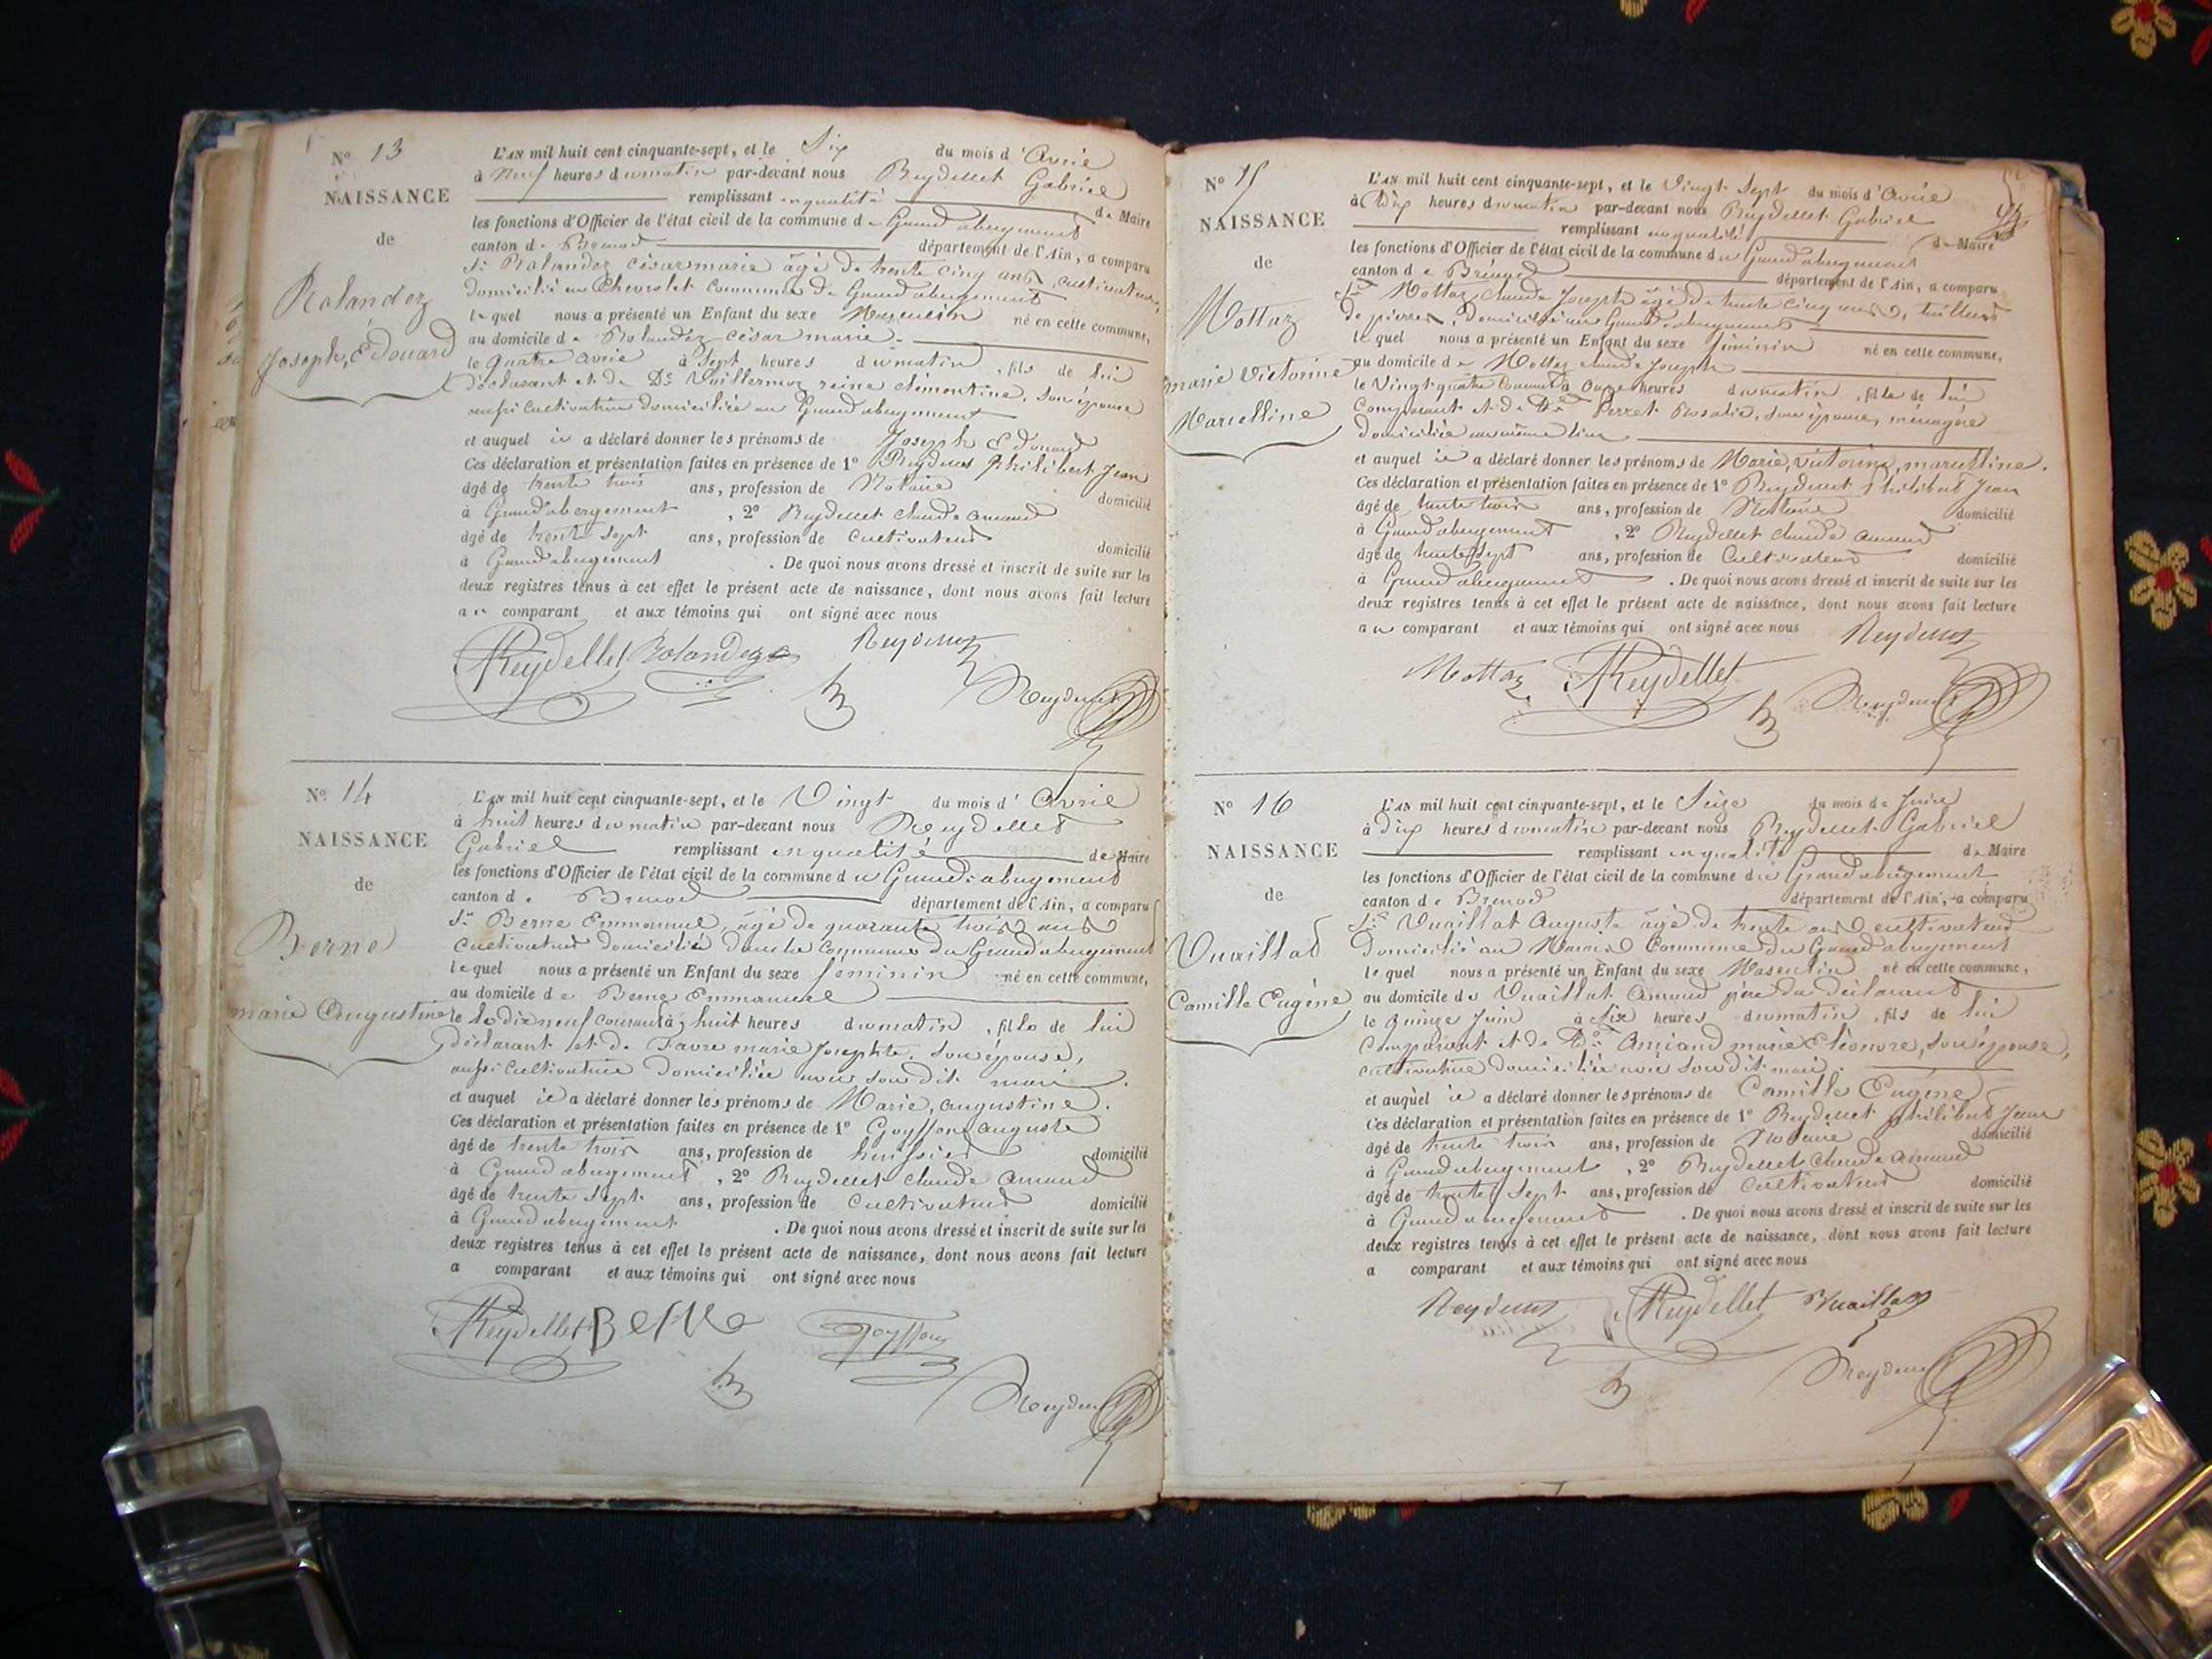 N° 13
NAISSANCE
de
Rolandez
Joseph, Edouard
L'AN mil huit cent cinquante-sept, et le Six du mois d'Avril
à Neuf heures du matin par-devant nous Reydellet Gabriel
remplissant en qualité de Maire
les fonctions d'Officier de l'état civil de la commune de Grand abergement
canton de Brenod département de l'Ain, a comparu
Sr Rolandez césar marie âgé de trente cinq ans, cultivateur,
domicilié au Chevrolet commune de Grand abergement
lequel nous a présenté un Enfant du sexe Masculin né en cette commune,
au domicile de Rolandez césar marie
le quatre avril à Sept heures du matin, fils de lui
déclarant et de De Vuillermoz reine clémentine, son épouse
aussi cultivatrice domiciliée au Grand abergement
et auquel il a déclaré donner les prénoms de Joseph Edouard
Ces déclaration et présentation faites en présence de 1° Reydellet philibert Jean
âgé de trente trois ans, profession de Notaire domicilié
à Grand abergement, 2° Reydellet claude amand
âgé de trente sept ans, profession de cultivateur domicilié
à Grand abergement. De quoi nous avons dressé et inscrit de suite sur les
deux registres tenus à cet effet le présent acte de naissance, dont nous avons fait lecture
au comparant et aux témoins qui ont signé avec nous
Reydellet Rolandez Reydellet
Reydellet
N° 14
NAISSANCE
de
Berne
marie Augustine
L'AN mil huit cent cinquante-sept, et le Vingt du mois d'Avril
à huit heures du matin par-devant nous Reydellet
Gabriel remplissant en qualité de Maire
les fonctions d'Officier de l'état civil de la commune du Grand-abergement
canton de Brenod département de l'Ain, a comparu
Sr Berne Emmanuel, âgé de quarante trois ans
cultivateur domicilié dans la commune du Grand abergement
lequel nous a présenté un Enfant du sexe féminin né en cette commune,
au domicile de Berne Emmanuel
le dix neuf courant à huit heures du matin, fille de lui
déclarant et de Favre marie Josephte, son épouse,
aussi cultivatrice domiciliée avec son dit mari.
et auquel il a déclaré donner les prénoms de Marie, augustine.
Ces déclaration et présentation faites en présence de 1° Goyffon auguste
âgé de trente trois ans, profession de huissier domicilié
à Grand abergement, 2° Reydellet claude amand
âgé de trente sept ans, profession de cultivateur domicilié
à Grand abergement. De quoi nous avons dressé et inscrit de suite sur les
deux registres tenus à cet effet le présent acte de naissance, dont nous avons fait lecture
a comparant et aux témoins qui ont signé avec nous
Reydellet Berne Goyffon
Reydellet
N° 15
NAISSANCE
de
Mottaz
marie victorine
Marcelline
L'AN mil huit cent cinquante-sept, et le Vingt Sept du mois d'Avril
à Dix heures du matin par-devant nous Reydellet Gabriel
remplissant en qualité de Maire
les fonctions d'Officier de l'état civil de la commune du Grand abergement
canton de Brénod département de l'Ain, a comparu
Sr Mottaz claude Joseph âgé de trente cinq ans, tailleur
de pierres, domicilié au Grand-abergement
lequel nous a présenté un Enfant du sexe féminin né en cette commune,
au domicile de Mottaz claude Joseph
le Vingt quatre courant à onze heures du matin, fille de lui
comparant et de De Perret Rosalie, son épouse, ménagère
domiciliée au même lieu
et auquel il a déclaré donner les prénoms de Marie, victorine, marcelline.
Ces déclaration et présentation faites en présence de 1° Reydellet philibert Jean
âgé de trente trois ans, profession de Notaire domicilié
à Grand abergement, 2° Reydellet claude amand
âgé de trente sept ans, profession de Cultivateur domicilié
à Grand abergement. De quoi nous avons dressé et inscrit de suite sur les
deux registres tenus à cet effet le présent acte de naissance, dont nous avons fait lecture
au comparant et aux témoins qui ont signé avec nous
Reydellet
Mottaz Reydellet Reydellet
N° 16
NAISSANCE
de
Vuaillat
Camille Eugène
L'AN mil huit cent cinquante-sept, et le Seize du mois de Juin
à dix heures du matin par-devant nous Reydellet Gabriel
remplissant en qualité de Maire
les fonctions d'Officier de l'état civil de la commune du Grand abergement
canton de Brenod département de l'Ain, a comparu
Sr Vuaillat Auguste âgé de trente ans cultivateur
domicilié au commune du Grand abergement
lequel nous a présenté un Enfant du sexe Masculin né en cette commune,
au domicile de Vuaillat Amand père du déclarant
le quinze Juin à Six heures du matin, fils de lui
comparant et de De marie Eléonore, son épouse,
cultivatrice domiciliée avec son dit mari.
et auquel il a déclaré donner les prénoms de Camille Eugène
Ces déclaration et présentation faites en présence de 1° Reydellet philibert Jean
âgé de trente trois ans, profession de Notaire domicilié
à Grand abergement, 2° Reydellet claude amand
âgé de trente sept ans, profession de cultivateur domicilié
à Grand abergement. De quoi nous avons dressé et inscrit de suite sur les
deux registres tenus à cet effet le présent acte de naissance, dont nous avons fait lecture
a comparant et aux témoins qui ont signé avec nous
Reydellet Reydellet Vuaillat
Reydellet